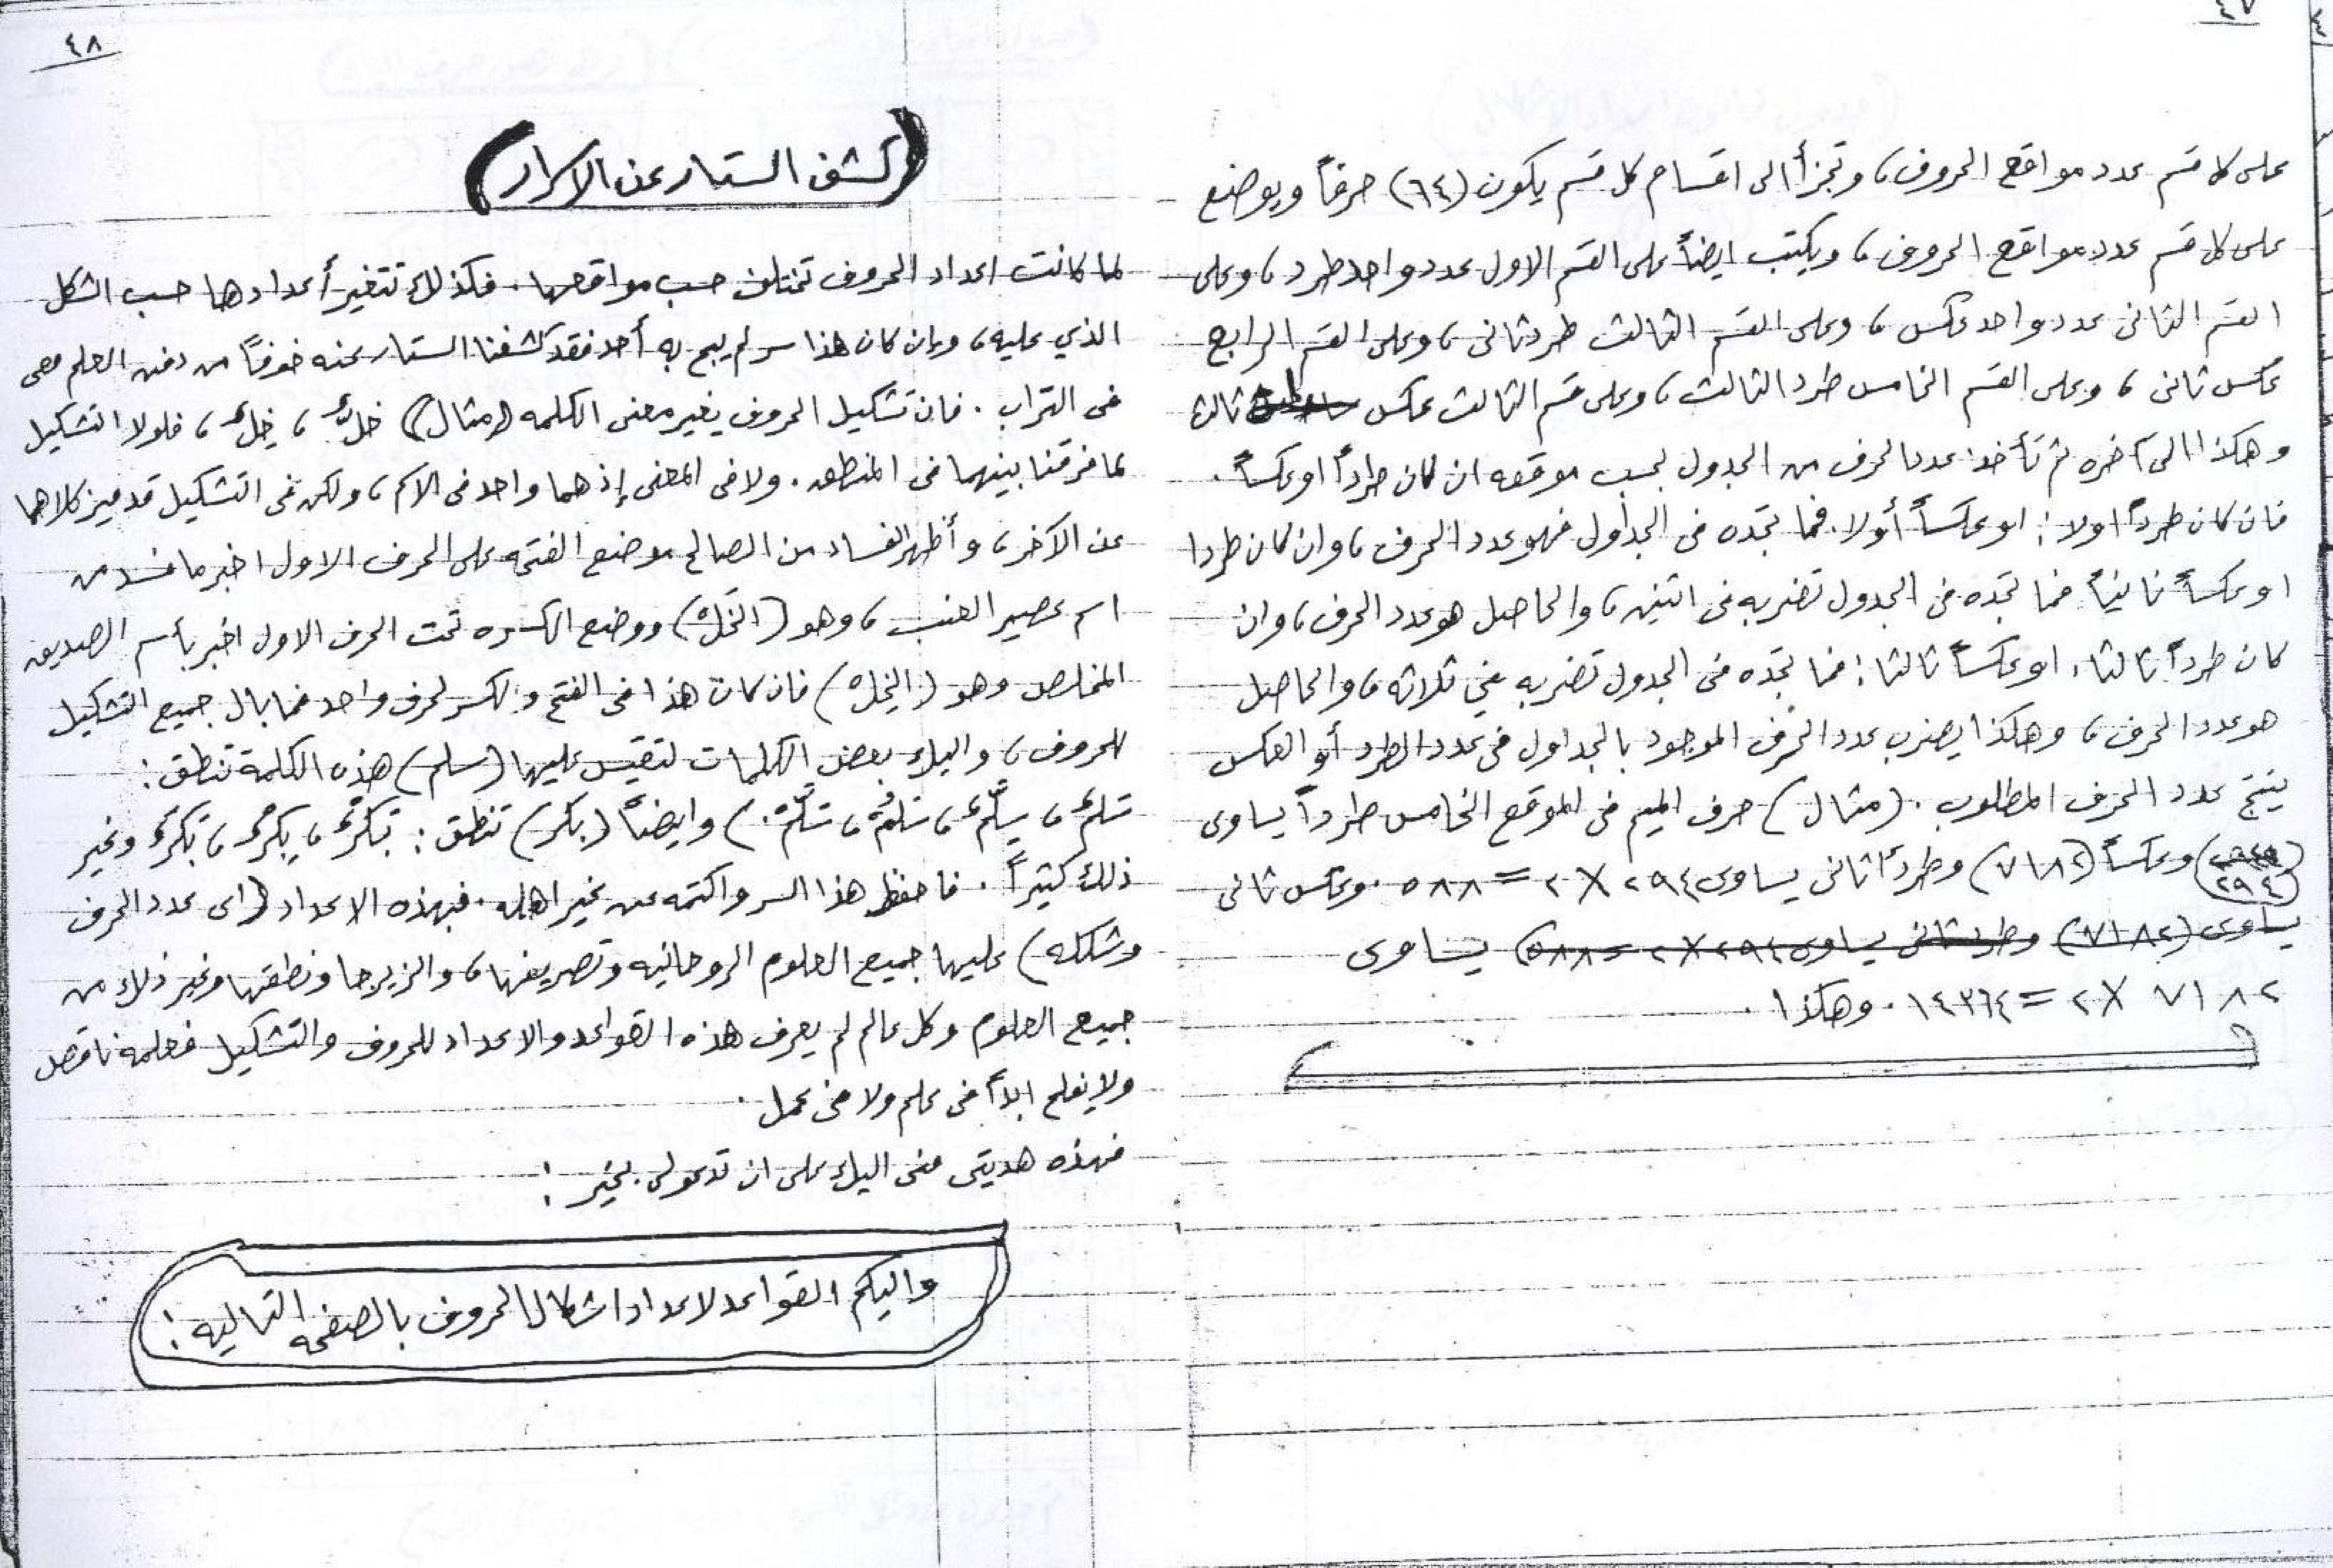 ٤٧
على كل قسم عدد مواقع الحروف، وتجزأ الى اقسام كل قسم يكون (٦٤) حرفاً ويوضع
على كل قسم عدد مواقع الحروف، ويكتب ايضاً على القسم الاول عدد واحد طرد، وعلى
القسم الثانى عدد واحد عكس، وعلى القسم الثالث طرد ثانى، وعلى القسم الرابع
عكس ثانى، وعلى القسم الخامس طرد الثالث، وعلى قسم الثالث عكس ثالث
وهكذا الى آخره ثم تأخذ عدد الحرف من الجدول بحسب موقعه ان كان طرداً او عكساً.
فان كان طرداً اولا: او عكساً أولا. فما تجده فى الجدول فهو عدد الحرف، وان كان طردا
او عكساً ثانياً فما تجده فى الجدول تضربه فى اثنين، والحاصل هو عدد الحرف، وان
كان طرداً ثالثا، او عكساً ثالثا: فما تجده فى الجدول تضربه في ثلاثه، والحاصل
هو عدد الحرف، وهكذا يضرب عدد الحرف الموجود بالجداول فى عدد الطرد أو العكس
ينتج عدد الحرف المطلوب. (مثال) حرف الميم فى الموقع الخامس طرداً يساوى
(٢٩٤) وعكساً (٧١٨٢) وطرداً ثانى يساوى ٢٩٤ X ٢ = ٥٨٨. وعكس ثانى
يساوى (٧١٨٢) وطرد ثانى يساوى ٢٩٤ X ٢ = ٥٨٨) يساوى
٧١٨٢ X ٢ = ١٤٣٦٤. وهكذا.
٤٨
(كشف الستار عن الاسرار)
لما كانت اعداد الحروف تختلف حسب مواقعها. فكذلك تتغير أعدادها حسب الشكل
الذي عليه، وإن كان هذا سر لم يبح به أحد فقد كشفنا الستار عنه خوفاً من دفن العلم معى
فى التراب. فان تشكيل الحروف يغير معنى الكلمه (مثال) خلٌّ، خِلٌّ، فلولا التشكيل
لما فرقنا بينهما فى المنطق. ولا فى المعنى إذ هما واحد فى الاسم، ولكن فى التشكيل قد ميز كلاهما
عن الآخر، وأظهر الفساد من الصالح موضع الفتحه على الحرف الاول اخبر ما فسد من
اسم عصير العنب، وهو (الخَل) ووضع الكسره تحت الحرف الاول اخبر بأسم الصديق
المخلص وهو (الخِل) فان كان هذا فى الفتح والكسر لحرف واحد فما بال جميع التشكيل
للحروف، واليك بعض الكلمات لتقيس عليها (سلم) هذه الكلمة تنطق:
سَلم، سِلّم، سَلمٌ، سَلّمَ.) وايضاً (بكر) تنطق: بَكرٌ، بِكرٌ، بَكرَ وغير
ذلك كثيراً. فاحفظ هذا السر واكتمه عن غير اهله. فبهذه الاعداد (اى عدد الحرف
وشكله) عليها جميع العلوم الروحانيه وتصريفها، والزيرجا ونطقها وغير ذلك من
جميع العلوم وكل عالم لم يعرف هذه القواعد والاعداد للحروف والتشكيل فعلمه ناقص
ولا يفلح ابداً فى علم ولا فى عمل.
فهذه هديتى منى اليك على ان تدعو لى بخير:
واليكم القواعد لاعداد اشكال الحروف بالصفحه التاليه: